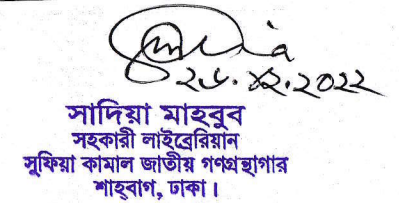 ২৮.১২.২০২২
সাদিয়া মাহবুব
সহকারী লাইব্রেরিয়ান
সুফিয়া কামাল জাতীয় গণগ্রন্থাগার
শাহ্‌বাগ, ঢাকা।